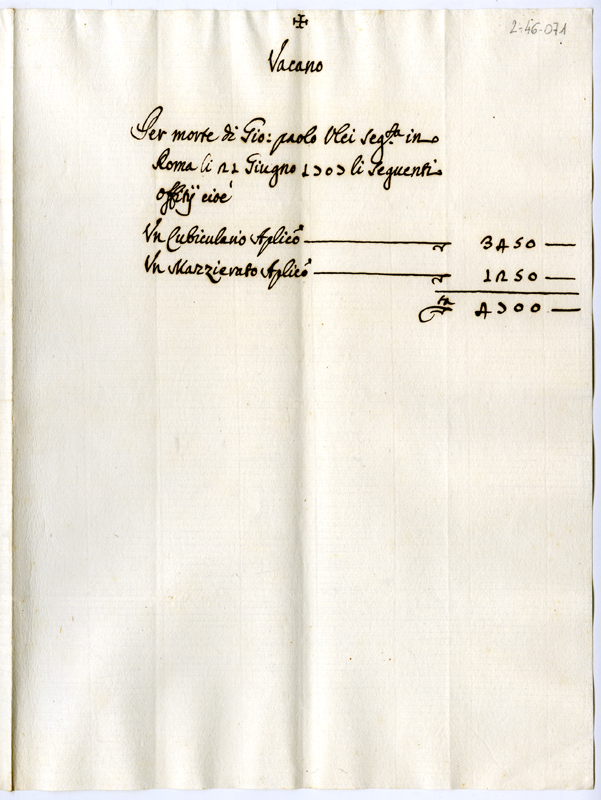 ✠
2-46-071
Vacano
Per morte di Gio: paolo Olei seg.ta in
Roma li 21 Giugno 1707 li seguenti
offitij cioè
Un Cubiculario Aplico — 3450 —
Un Mazzierato Aplico — 1250 —
4700 —